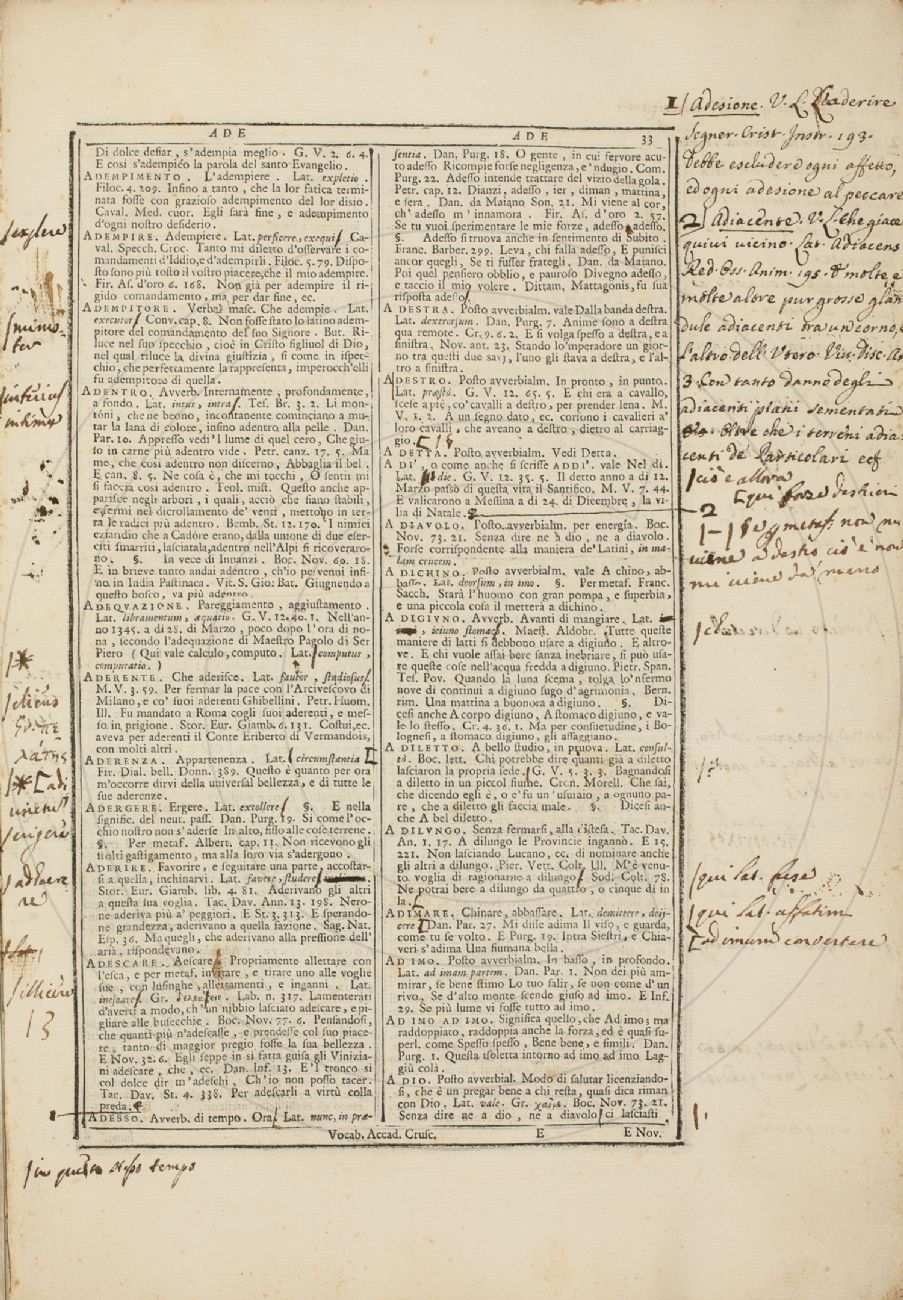 ADE
ADE 33
Di dolce desiar, s'adempia meglio. G. V. 2. 6. 4.
E così s'adempieo la parola del santo Evangelio.
ADEMPIMENTO. L'adempiere. Lat. expletio.
Filoc. 4. 209. Insino a tanto, che la lor fatica termi-
nata fosse con grazioso adempimento del lor disio.
Caval. Med. cuor. Egli sarà fine, e adempimento
d'ogni nostro desiderio.
ADEMPIRE. Adempiere. Lat. perficere, exequi. Ca-
val. Specch. Croc. Tanto mi diletto d'osservare i co-
mandamenti d'Iddio, e d'adempirli. Filoc. 5. 79. Dispo-
sto sono più tosto il vostro piacere, che il mio adempire.
Fir. As. d'oro 6. 168. Non già per adempire il ri-
gido comandamento, ma per dar fine, ec.
ADEMPITORE. Verbal masc. Che adempie. Lat.
executor Conv. cap. 8. Non fosse stato lo latino adem-
pitore del comandamento del suo Signore. But. Ri-
luce nel suo specchio, cioè in Cristo figliuol di Dio,
nel qual riluce la divina giustizia, sì come in ispec-
chio, che perfettamente la rappresenta, imperocch'elli
fu adempitore di quella.
ADENTRO. Avverb. Internamente, profondamente,
a fondo. Lat. intus, intra. Tes. Br. 3. 2. Li mon-
toni, che ne beono, incontanente cominciano a mu-
tar la lana di colore, insino adentro alla pelle. Dan.
Par. 10. Appresso vedi'l lume di quel cero, Che giu-
so in carne più adentro vide. Petr. canz. 17. 5. Ma
me, che così adentro non discerno, Abbaglia il bel.
E can. 8. 5. Ne cosa è, che mi tocchi, O sentir mi
si faccia così adentro. Teol. mist. Questo anche ap-
parisce negli arbori, i quali, acciò che siano stabili,
e fermi nel dicrollamento de' venti, mettono in ter-
ra le radici più adentro. Bemb. St. 12. 170. I nimici
eziandio che a Cadore erano, dalla unione di due eser-
citi smarriti, lasciatala, adentro nell'Alpi si ricoveraro-
no. §. In vece di Innanzi. Boc. Nov. 60. 18.
E in brieve tanto andai adentro, ch'io pervenni insi-
no in India Pastinaca. Vit. S. Gio: Bat. Giugnendo a
questo bosco, va più adentro.
ADEQVAZIONE. Pareggiamento, aggiustamento.
Lat. libramentum, æquatio. G. V. 12. 40. 1. Nell'an-
no 1345. a dì 28. di Marzo, poco dopo l'ora di no-
na, secondo l'adequazione di Maestro Pagolo di Ser
Piero (Qui vale calculo, computo. Lat. computus,
computatio.)
ADERENTE. Che aderisce. Lat. fautor, studiosus.
M. V. 3. 59. Per fermar la pace con l'Arcivescovo di
Milano, e co' suoi aderenti Ghibellini. Petr. Huom.
Ill. Fu mandato a Roma cogli suoi aderenti, e mes-
so in prigione. Stor. Eur. Giamb. 6. 131. Costui, ec.
aveva per aderenti il Conte Eriberto di Vermandois,
con molti altri.
ADERENZA. Appartenenza. Lat. circumstantia
Fir. Dial. bell. Donn. 389. Questo è quanto per ora
m'occorre dirvi della universal bellezza, e di tutte le
sue aderenze.
ADERGERE. Ergere. Lat. extollere. §. E nella
signific. del neut. pass. Dan. Purg. 19. Sì come l'oc-
chio nostro non s'aderse In alto, fisso alle cose terrene.
§. Per metaf. Albert. cap. 11. Non ricevono gli
stolti gastigamento, ma alla loro via s'adergono.
ADERIRE. Favorire, e seguitare una parte, accostar-
si a quella, inchinarvi. Lat. favere, studere
Stor. Eur. Giamb. lib. 4. 81. Aderivano gli altri
a questa sua voglia. Tac. Dav. Ann. 13. 198. Nero-
ne aderiva più a' peggiori. E St. 3. 313. E sperando-
ne grandezza, aderivano a quella fazione. Sag. Nat.
Esp. 36. Ma quegli, che aderivano alla pressione dell'
aria, rispondevano.
ADESCARE. Aescare. Propriamente allettare con
l'esca, e per metaf. invitare, e tirare uno alle voglie
sue, con lusinghe, allettamenti, e inganni. Lat.
inescare. Gr. δελεάζειν. Lab. n. 317. Lamenterati
d'averti a modo, ch'un nibbio lasciato adescare, e pi-
gliare alle busecchie. Boc. Nov. 77. 6. Pensandosi,
che quanti più n'adescasse, e prendesse col suo piace-
re, tanto di maggior pregio fosse la sua bellezza.
E Nov. 32. 6. Egli seppe in sì fatta guisa gli Vinizia-
ni adescare, che, ec. Dan. Inf. 13. E'l tronco sì
col dolce dir m'adeschi, Ch'io non posso tacer.
Tac. Dav. St. 4. 338. Per adescarli a virtù colla
preda.
ADESSO. Avverb. di tempo. Ora. Lat. nunc, in præ-
sentia. Dan. Purg. 18. O gente, in cui fervore acu-
to adesso Ricompie forse negligenza, e'ndugio. Com.
Purg. 22. Adesso intende trattare del vizio della gola.
Petr. cap. 12. Dianzi, adesso, ier, diman, mattina,
e sera. Dan. da Maiano Son. 21. Mi viene al cor,
ch'adesso m'innamora. Fir. As. d'oro 2. 57.
Se tu vuoi sperimentare le mie forze, adesso adesso.
§. Adesso si truova anche in sentimento di Subito.
Franc. Barber. 299. Leva, chi falla adesso, E punisci
ancor quegli, Se ti fusser frategli, Dan. da Maiano.
Poi quel pensiero obblio, e pauroso Divegno adesso,
e taccio il mio volere. Dittam. Mattagonis, fu sua
risposta adesso.
A DESTRA. Posto avverbialm. vale Dalla banda destra.
Lat. dextrorsum. Dan. Purg. 7. Anime sono a destra
qua remote. Cr. 9. 6. 2. E si volga spesso a destra, e a
sinistra. Nov. ant. 23. Stando lo'mperadore un gior-
no tra questi due savj, l'uno gli stava a destra, e l'al-
tro a sinistra.
A DESTRO. Posto avverbialm. In pronto, in punto.
Lat. prestò. G. V. 12. 65. 5. E chi era a cavallo,
scese a piè, co'cavalli a destro, per prender lena. M.
V. 3. 2. A un segno dato, ec. corsono i cavalieri a'
loro cavalli, che aveano a destro, dietro al carriag-
gio.
A DETTA. Posto. avverbialm. Vedi Detta.
A DI', o come anche si scrisse ADDI'. vale Nel dì.
Lat. die. G. V. 12. 35. 5. Il detto anno a dì 12.
Marzo passò di questa vita il Santifico. M. V. 7. 44.
E valicarono a Messina a dì 24. di Dicembre, la vi-
lia di Natale.
A DIAVOLO. Posto avverbialm. per energía. Boc.
Nov. 73. 21. Senza dire ne a dio, ne a diavolo.
Forse corrispondente alla maniera de' Latini, in ma-
lam crucem.
A DICHINO. Posto avverbialm. vale A chino, ab-
basso. Lat. deorsum, in imo. §. Per metaf. Franc.
Sacch. Starà l'huomo con gran pompa, e superbia,
e una piccola cosa il metterà a dichino.
A DIGIVNO. Avverb. Avanti di mangiare. Lat.
, ieiuno stomaco. Maest. Aldobr. Tutte queste
maniere di latti si debbono usare a digiuno. E altro-
ve. E chi vuole assai bere sanza inebriare, si può usa-
re queste cose nell'acqua fredda a digiuno. Pietr. Span.
Tes. Pov. Quando la luna scema, tolga lo'nfermo
nove di continui a digiuno sugo d'agrimonia. Bern.
rim. Una mattina a buonora a digiuno. §. Di-
cesi anche A corpo digiuno, A stomaco digiuno, e va-
le lo stesso. Cr. 4. 36. 1. Ma per consuetudine, i Bo-
lognesi, a stomaco digiuno, gli assaggiano.
A DILETTO. A bello studio, in pruova. Lat. consul-
tò. Boc. lett. Chi potrebbe dire quanti già a diletto
lasciaron la propria sede. G. V. 5. 3. 3. Bagnandosi
a diletto in un piccol fiume. Cron. Morell. Che sai,
che dicendo egli è, o e'fu un'usuraio, a ognuno pa-
re, che a diletto gli faccia male. §. Dicesi an-
che A bel diletto.
A DILVNGO. Senza fermarsi, alla distesa. Tac. Dav.
An. 1. 17. A dilungo le Provincie ingannò. E 15.
221. Non lasciando Lucano, ec. di nominare anche
gli altri a dilungo. Pier. Vett. Colt. Ul. M'è venu-
to voglia di ragionarne a dilungo. Sod. Colt. 78.
Ne potrai bere a dilungo da quattro, o cinque dì in
là.
ADIMARE. Chinare, abbassare. Lat. demittere, deij-
cere Dan. Par. 27. Mi disse adima Il viso, e guarda,
come tu se volto. E Purg. 19. Intra Siestri, e Chia-
veri s'adima Una fiumana bella.
AD IMO. Posto avverbialm. In basso, in profondo.
Lat. ad imam partem. Dan. Par. 1. Non dei più am-
mirar, se bene stimo Lo tuo salir, se non come d'un
rivo, Se d'alto monte scende giuso ad imo. E Inf.
29. Se più lume vi fosse tutto ad imo.
AD IMO AD IMO. Significa quello, che Ad imo; ma
raddoppiato, raddoppia anche la forza, ed è quasi su-
perl. come Spesso spesso, Bene bene, e simili. Dan.
Purg. 1. Questa isoletta intorno ad imo ad imo Lag-
giù colà.
A DIO. Posto avverbial. Modo di salutar licenziando-
si, che è un pregar bene a chi resta, quasi dica riman
con Dio. Lat. vale. Gr. χαῖρε. Boc. Nov. 73. 21.
Senza dire ne a dio, ne a diavolo ci lasciasti
Vocab. Accad. Crusc. E E Nov.
explere
minis-
ter
intimè
13
in questo stesso tempo
1 Adesione. V. L. L'aderire
Segner. Crist. Instr. 193.
Debbe escludere ogni affetto,
ed ogni adesione al peccare
2 Adiacente. V. L. che giace
quivi vicino. Lat. Adiacens
Red. Oss. Anim. 195. E molte e
molte altre pur grosse glan
dule adiacenti tra un corno, e
l'altro dell'Utero. Viv. Disc. Ar
3. Con tanto danno degli
adiacenti piani sementati
Oltre che i terreni adia
centi de' Particolari ec
cioè allora
qui
metaf. non mi
viene a destro cioè non
mi viene da mano
qui Lat.
qui Lat. affatim
ad imum convertere